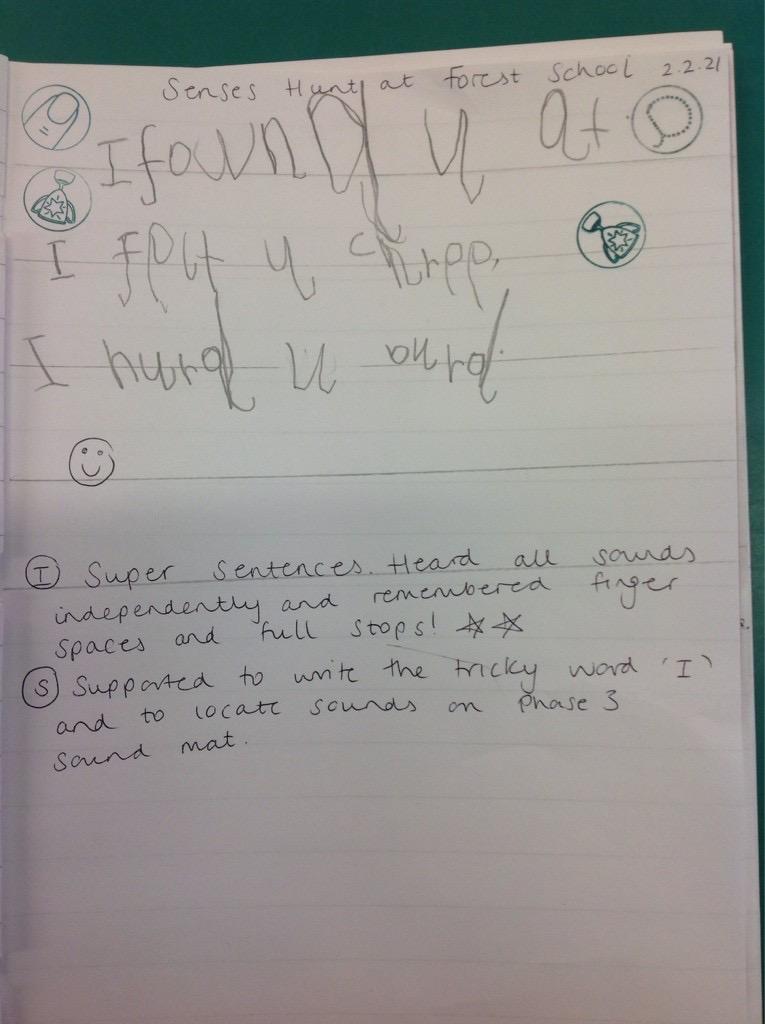 Senses Hunt at Forest School 2.2.21
I fownd u at
I felt u chree.
I hurd u burd.
I Super sentences. Heard all sounds
independently and remembered finger
spaces and full stops!
S Supported to write the tricky word 'I'
and to locate sounds on Phase 3
sound mat.